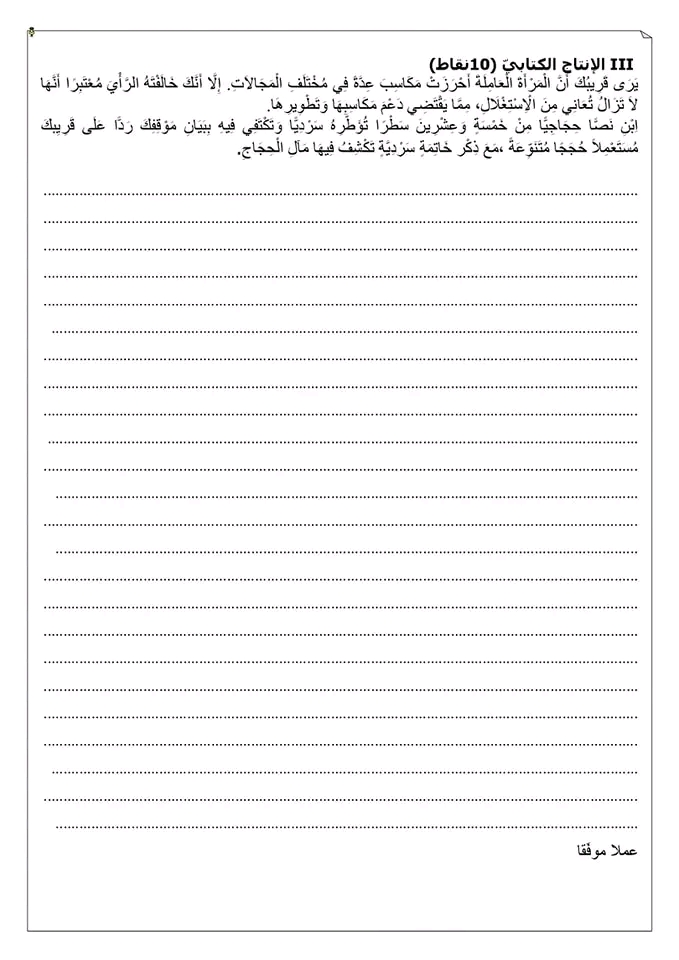 III الإنتاج الكتابيّ (10نقاط)
يَرَى قَرِيبُكَ أَنَّ الْمَرْأَةَ الْعَامِلَةَ أَحْرَزَتْ مَكَاسِبَ عِدَّةً فِي مُخْتَلَفِ الْمَجَالاَتِ. إِلَّا أَنَّكَ خَالَفْتَهُ الرَّأْيَ مُعْتَبِرًا أَنَّهَا
لاَ تَزَالُ تُعَانِي مِنَ الْاِسْتِغْلَالِ، مِمَّا يَقْتَضِي دَعْمَ مَكَاسِبِهَا وَتَطْوِيرِهَا.
اِبْنِ نَصًّا حِجَاجِيًّا مِنْ خَمْسَةٍ وَعِشْرِينَ سَطْرًا تُؤَطِّرُهُ سَرْدِيًّا وَتَكْتَفِي فِيهِ بِبَيَانِ مَوْقِفِكَ رَدًّا عَلَى قَرِيبِكَ
مُسْتَعْمِلاً حُجَجًا مُتَنَوِّعَةً ،مَعَ ذِكْرِ خَاتِمَةٍ سَرْدِيَّةٍ تَكْشِفُ فِيهَا مَآلِ الْحِجَاجِ.
عملا موفّقا